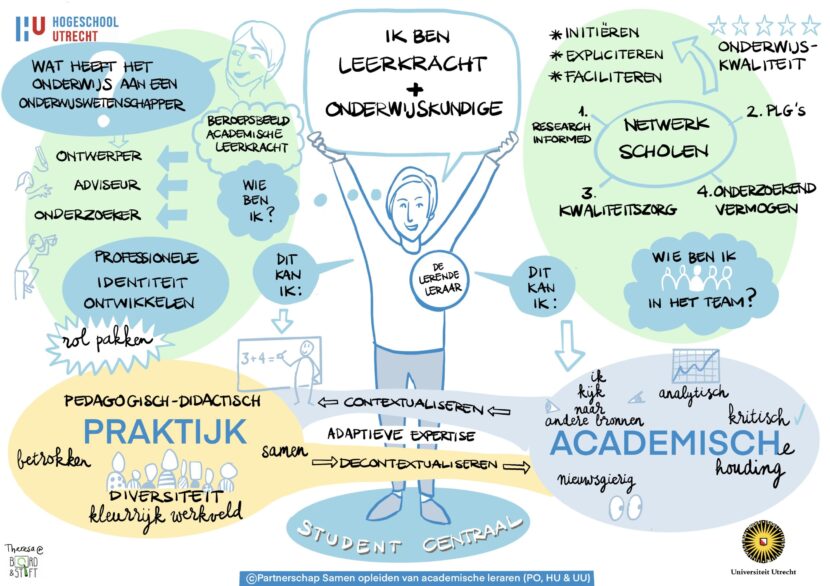 HU HOGESCHOOL
UTRECHT
WAT HEEFT HET
ONDERWIJS AAN EEN
ONDERWIJSWETENSCHAPPER
?
ONTWERPER
ADVISEUR
ONDERZOEKER
PROFESSIONELE
IDENTITEIT
ONTWIKKELEN
rol pakken
BEROEPSBEELD
ACADEMISCHE
LEERKRACHT
WIE
BEN
IK?
IK BEN
LEERKRACHT
+
ONDERWIJSKUNDIGE
DE
LERENDE
LERAAR
DIT
KAN
IK:
DIT
KAN
IK:
* INITIËREN
* EXPLICITEREN
* FACILITEREN
ONDERWIJS-
KWALITEIT
1.
RESEARCH
INFORMED
2. PLG's
NETWERK
SCHOLEN
3.
KWALITEITSZORG
4. ONDERZOEKEND
VERMOGEN
WIE BEN IK
IN HET TEAM?
3+4=
PEDAGOGISCH-DIDACTISCH
PRAKTIJK
betrokken
samen
DIVERSITEIT
kleurrijk werkveld
CONTEXTUALISEREN
ADAPTIEVE EXPERTISE
DECONTEXTUALISEREN
ik
kijk
naar
andere bronnen
analytisch
kritisch
ACADEMISCHe
houding
nieuwsgierig
STUDENT CENTRAAL
Theresa @
BOARD
& STIFT
©Partnerschap Samen opleiden van academische leraren (PO, HU & UU)
Universiteit Utrecht